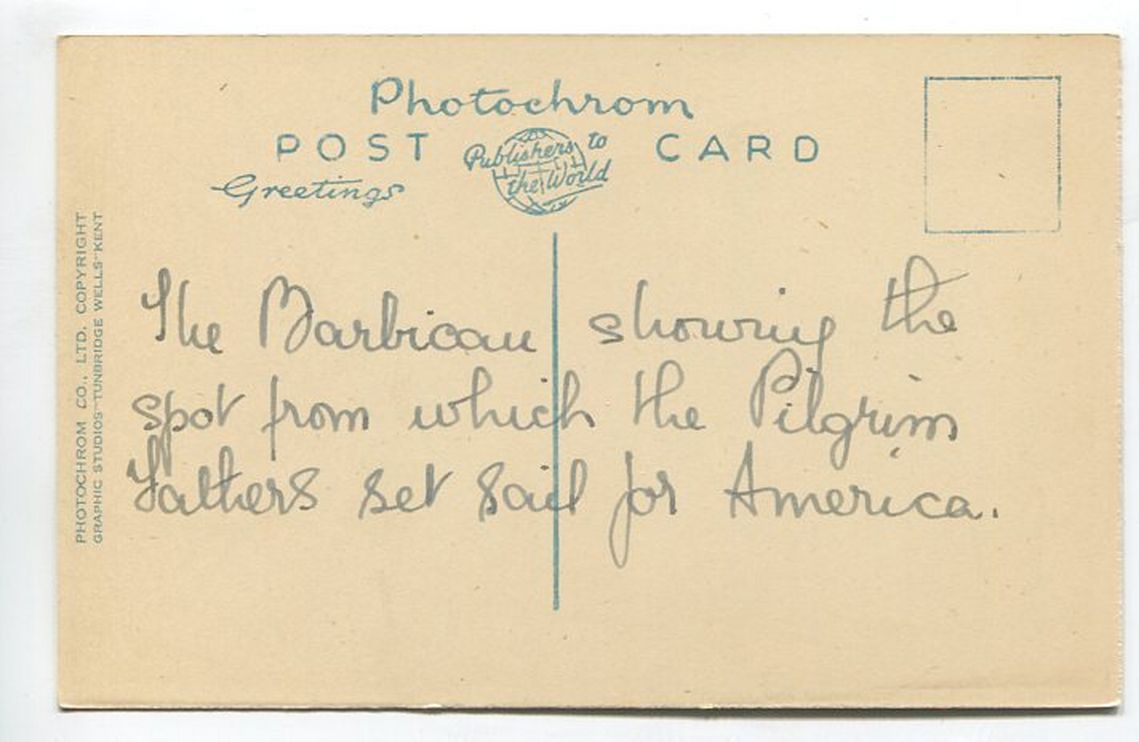 Photochrom
POST CARD
Publishers to
the World
Greetings
PHOTOCHROM CO., LTD. COPYRIGHT
GRAPHIC STUDIOS–TUNBRIDGE WELLS–KENT
The Barbican showing the
spot from which the Pilgrim
Fathers set sail for America.